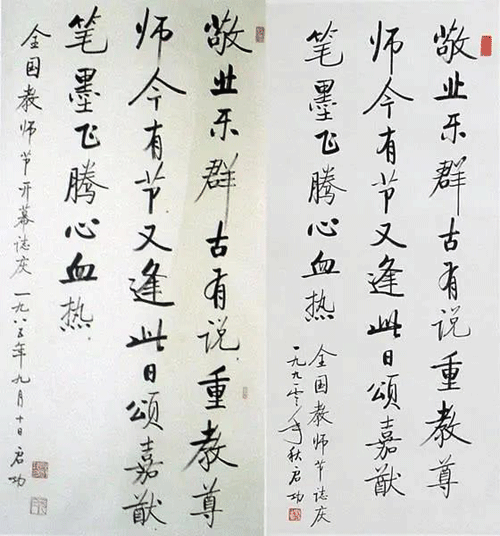 敬业乐群古有说重教尊
师今有节又逢此日颂嘉猷
笔墨飞腾心血热
全国教师节开幕誌庆一九八五年九月十日启功
敬业乐群古有说重教尊
师今有节又逢此日颂嘉猷
笔墨飞腾心血热
全国教师节誌庆
一九九零年秋启功